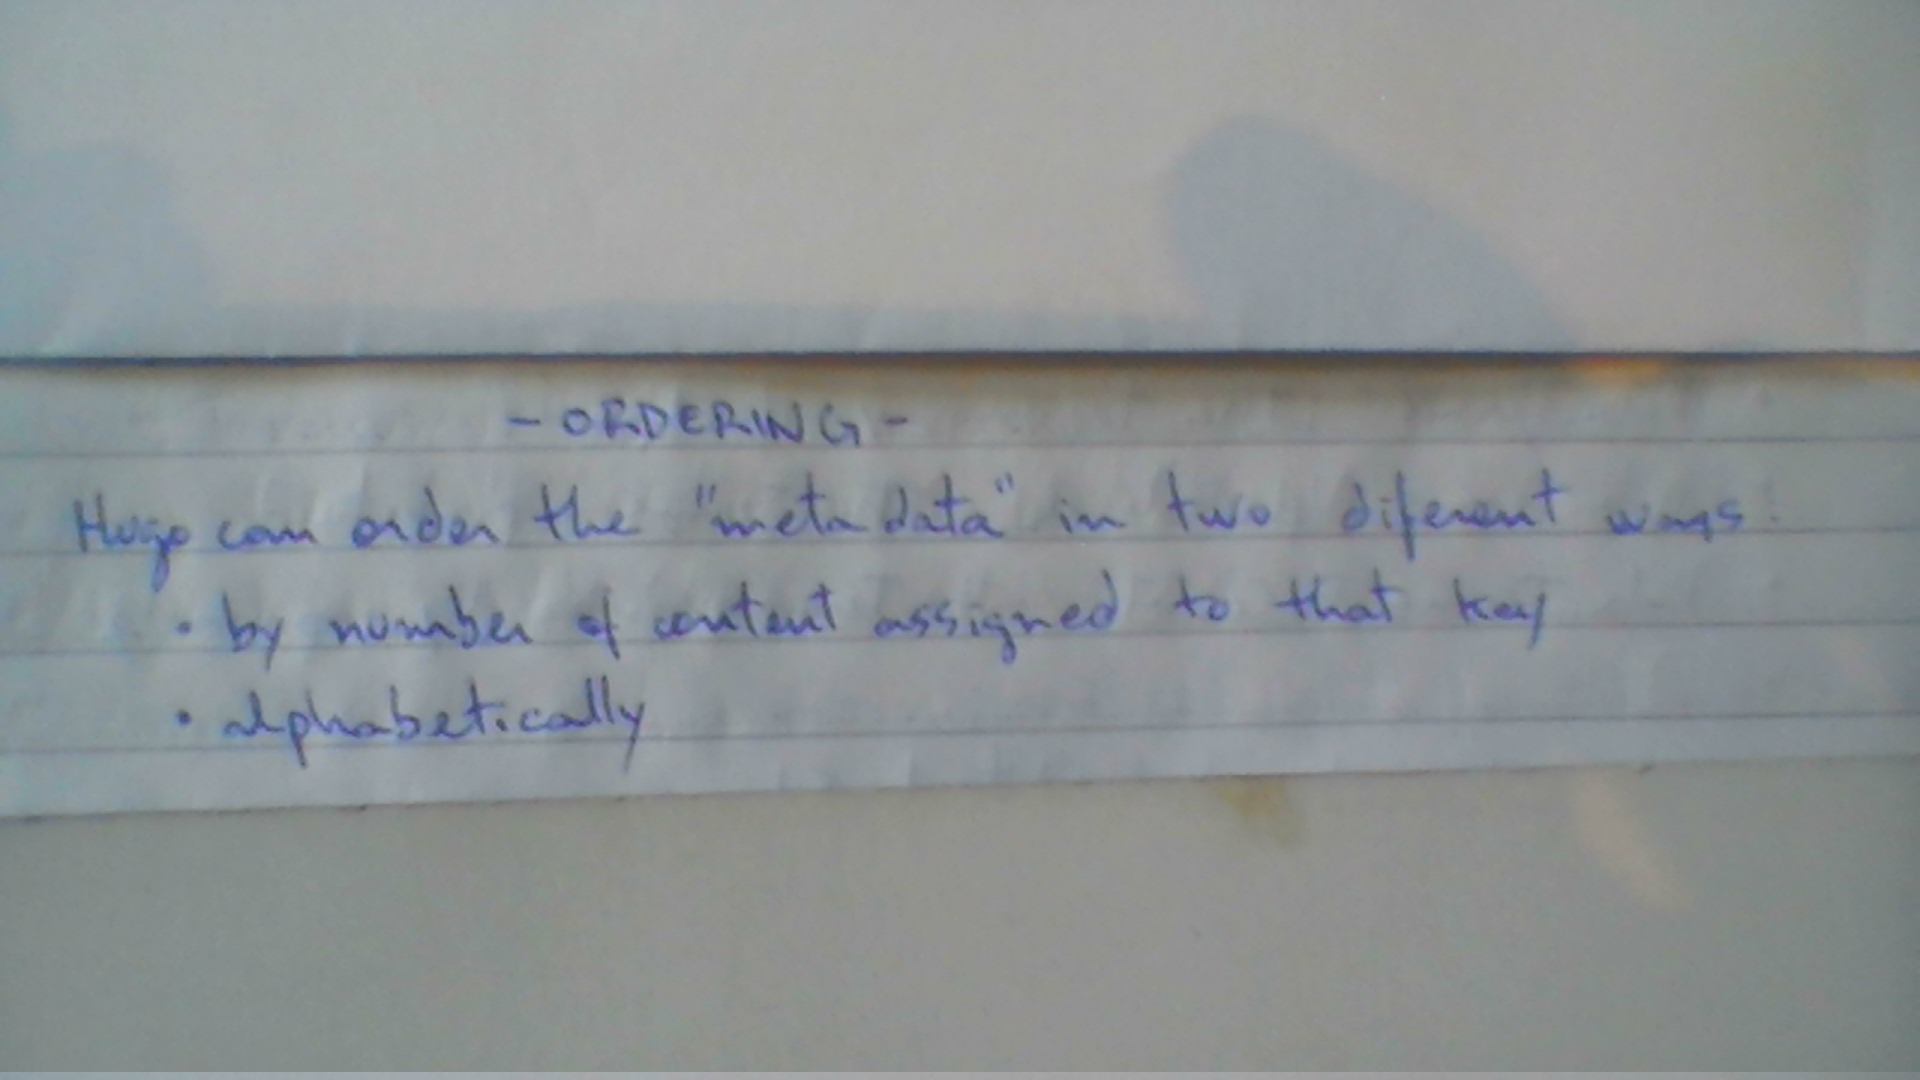 - ORDERING -
Hugo can order the "meta data" in two diferent ways:
• by number of content assigned to that key
• alphabetically